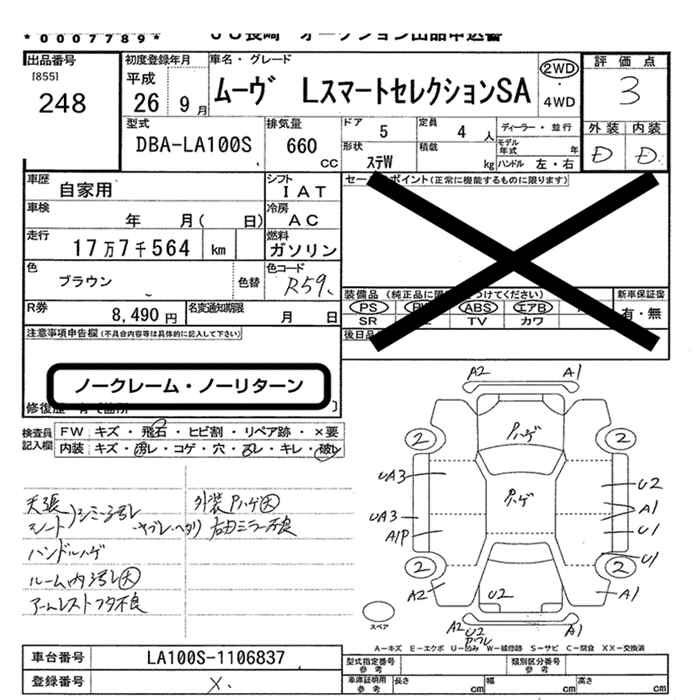 *0007789*
JU長崎 オークション出品申込書
出品番号
[855]
248
初度登録年月
平成
26 9月
車名・グレード
ムーヴ LスマートセレクションSA
2WD
・
4WD
評価点
3
外装 内装
D D
型式
DBA-LA100S
排気量
660
cc
ドア 5
定員 4 人
ディーラー・並行
形状
ステW
積載
kg
モデル年式 年
ハンドル 左・右
車歴
自家用
シフト
IAT
車検
年 月( 日)
冷房
AC
走行
17万7千564 km
燃料
ガソリン
色
ブラウン
色替
色コード
R59
R券
8,490円
名変通知期限
月 日
セールスポイント(正常に機能するものに限ります)
装備品
新車保証書
有・無
PS ABS エアB カワ
SR TV
後日品
注意事項申告欄(不具合内容等は具体的に記入して下さい)
ノークレーム・ノーリターン
検査員
記入欄
FW キズ・飛石・ヒビ割・リペア跡・×要
内装 キズ・汚レ・コゲ・穴・スレ・キレ・破レ
天張
シート シミ汚レ ヤブレ・ヘタリ
ハンドルハゲ
ルーム内汚レ大
アームレストフタ不良
外装Pハゲ大
右ミラー不良
A2 A1
2 Pハゲ 2
UA3 Pハゲ U2
UA3 A1
A1P U1
2 2 U1
A2 U2 A1
U2 A1
スペア
A-キズ E-エクボ U-凹み W-補修跡 S-サビ C-腐食 XX-交換済
車台番号 LA100S-1106837
登録番号 X
型式指定番号
参考
類別区分番号
参考
車庫証明用
参考
長さ cm 幅 cm 高さ cm